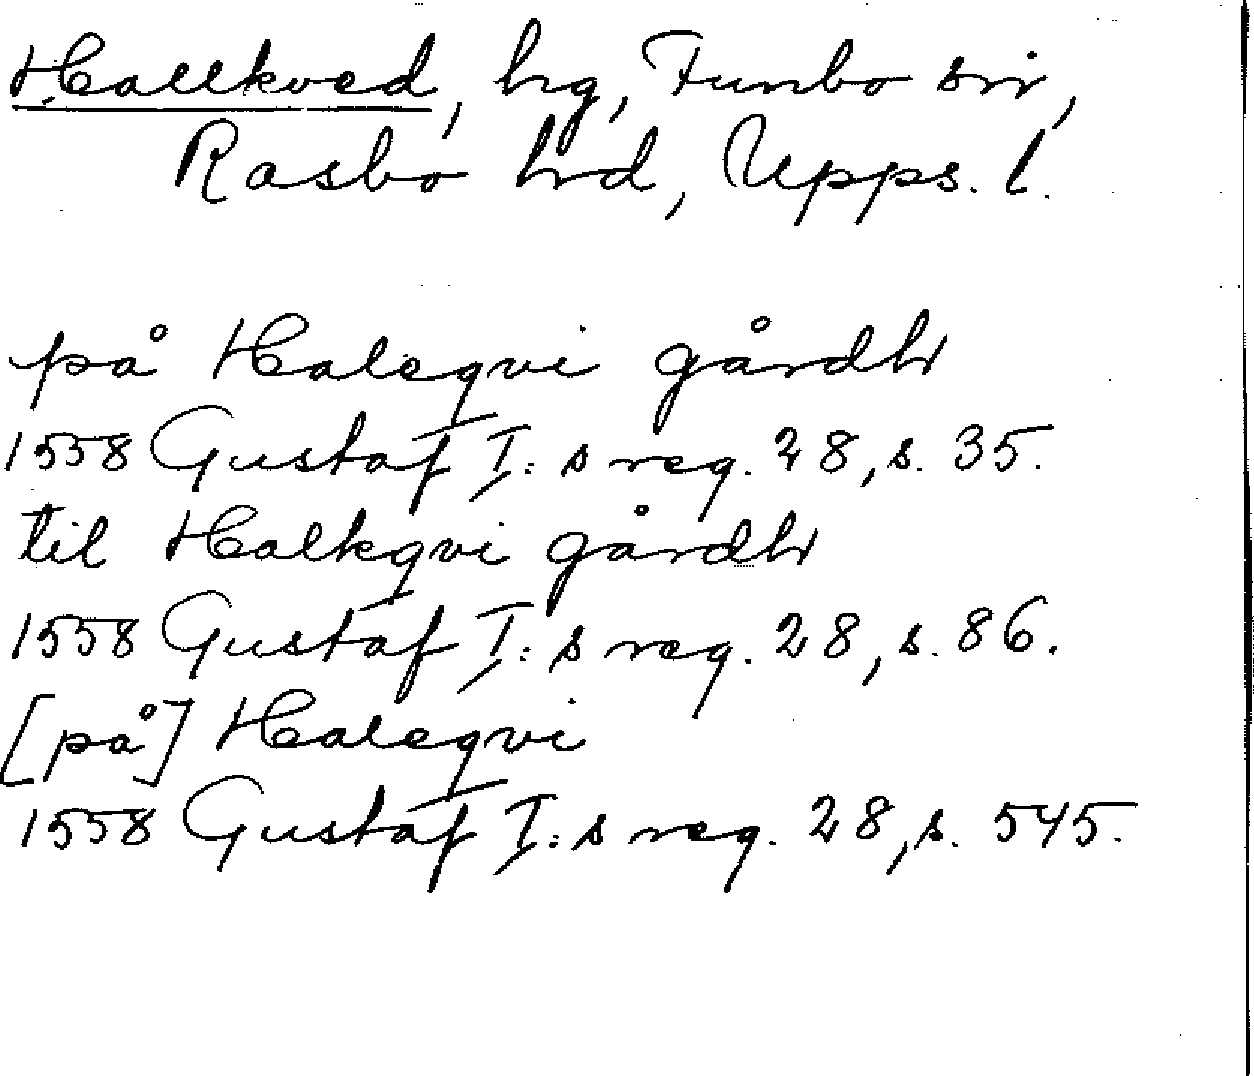 Hallkved, hg, Funbo sn,
Rasbo hrd, Upps. l.
på Haleqvi gårdh
1558 Gustaf I:s reg. 28, s. 35.
til Halkqvi gårdh
1558 Gustaf I:s reg. 28, s. 86.
[på] Haleqvi
1558 Gustaf I:s reg. 28, s. 545.